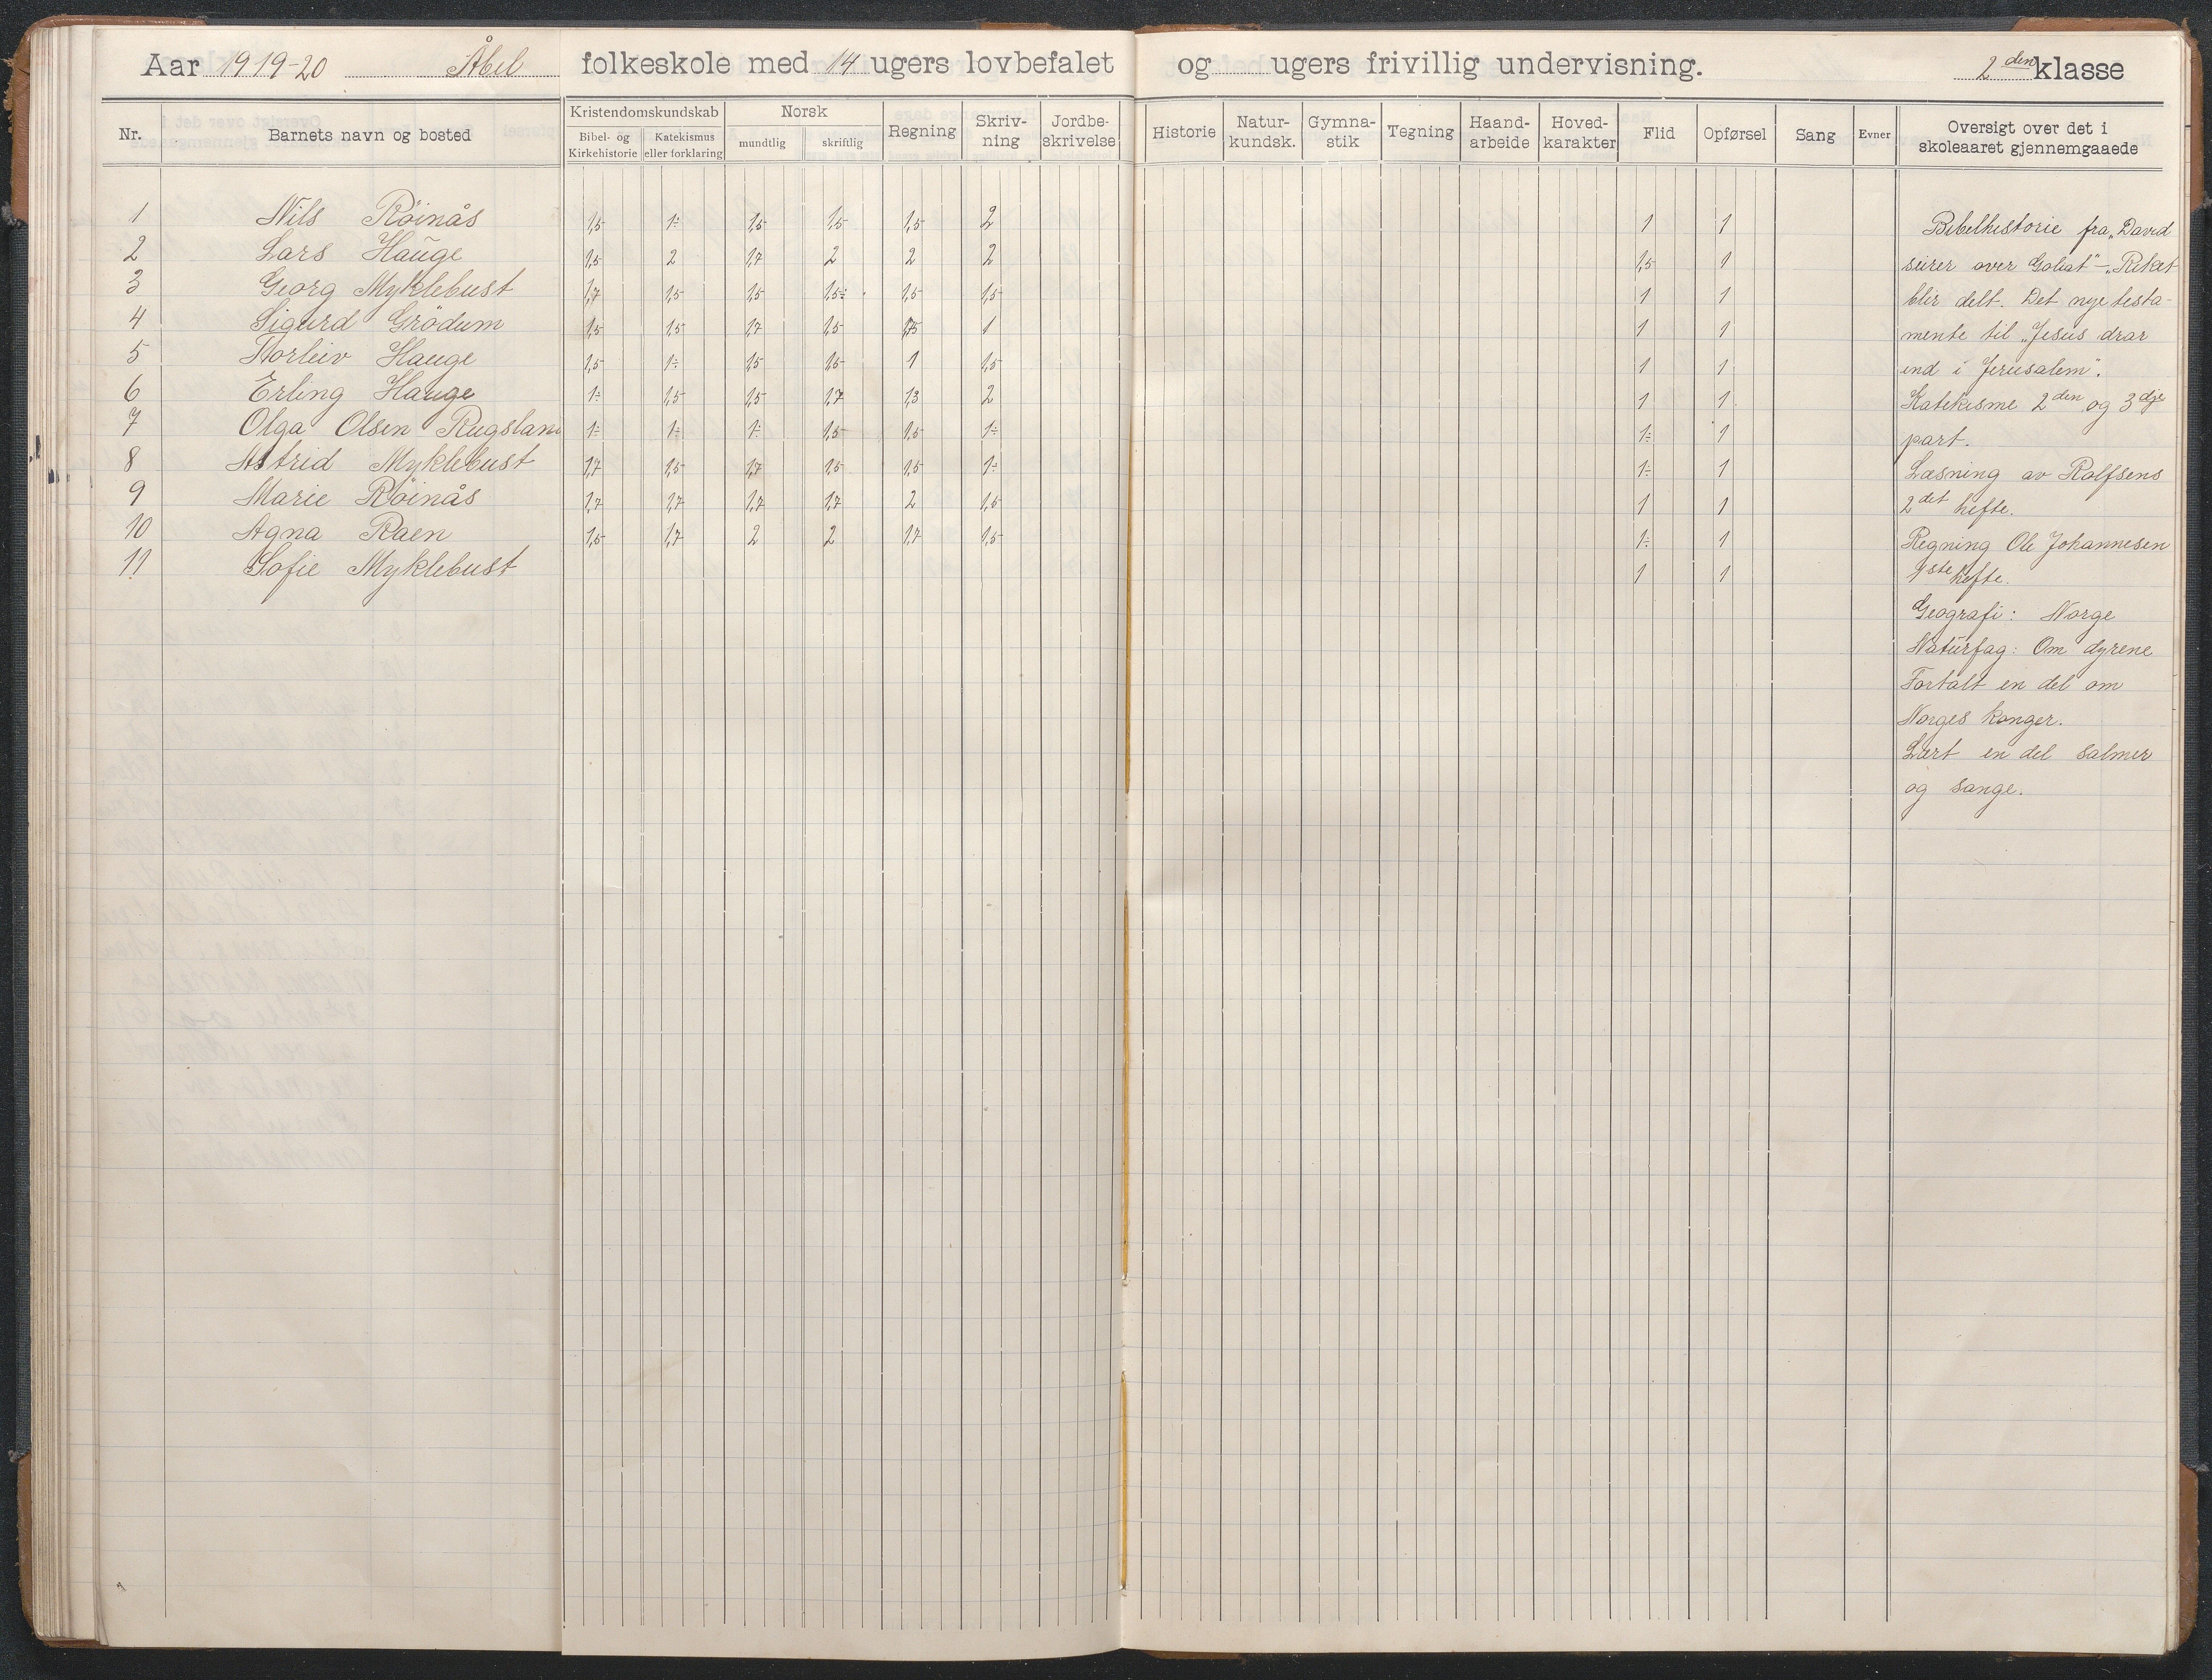 Aar 1919-20 Åbel folkeskole med 14 ugers lovbefalet og ugers frivillig undervisning. 2den klasse
Nr. Barnets navn og bosted Kristendomskundskab Bibel- og Kirkehistorie Katekismus eller forklaring Norsk mundtlig skriftlig Regning Skriv-ning Jordbe-skrivelse Historie Natur-kundsk. Gymna-stik Tegning Haand-arbeide Hoved-karakter Flid Opførsel Sang Evner Oversigt over det i skoleaaret gjennemgaaede
1 Nils Röinås 1,5 1÷ 1,5 1,5 1,5 2 1 1
2 Lars Hauge 1,5 2 1,7 2 2 2 1,5 1
3 Georg Myklebust 1,7 1,5 1,5 1,5÷ 1,5 1,5 1 1
4 Sigurd Grödum 1,5 1,5 1,7 1,5 1 1 1
5 Torleiv Hauge 1,5 1÷ 1,5 1,5 1 1,5 1 1
6 Erling Hauge 1÷ 1,5 1,5 1,7 1,3 2 1 1
7 Olga Olsen Rugsland 1÷ 1÷ 1÷ 1,5 1,5 1÷ 1÷ 1
8 Astrid Myklebust 1,7 1,5 1,7 1,5 1,5 1÷ 1÷ 1
9 Marie Röinås 1,7 1,7 1,7 1,7 2 1,5 1 1
10 Agna Raen 1,5 1,7 2 2 1,7 1,5 1÷ 1
11 Sofie Myklebust 1 1
Bibelhistorie fra „David
seirer over Goliat" - „Riket
blir delt. Det nye testa-
mente til „Jesus drar
ind i Jerusalem".
Katekisme 2den og 3dje
part.
Læsning av Rolfsens
2det hefte.
Regning Ole Johannesen
1ste hefte.
Geografi: Norge
Naturfag: Om dyrene
Fortalt en del om
Norges konger.
Lært en del salmer
og sange.